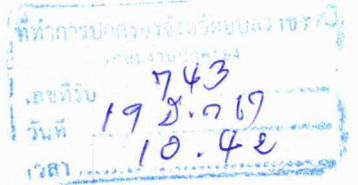 ที่ทำการปกครองจังหวัดอุบลราชธานี
เลขที่รับ 743
วันที่ 19 มี.ค 67
เวลา 10.42